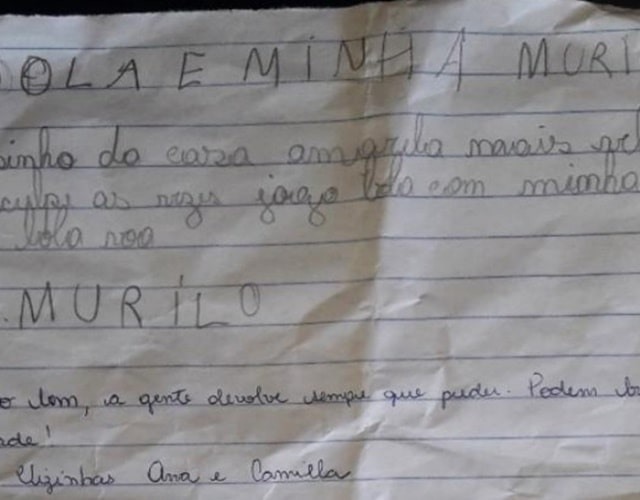 OLA E MINHA MURI
sinho do casa amarela
as vezes jogo bola com minha
bola voa
MURILO
bem, a gente devolve sempre que puder. Podem
ade!
Vizinhas Ana e Camilla